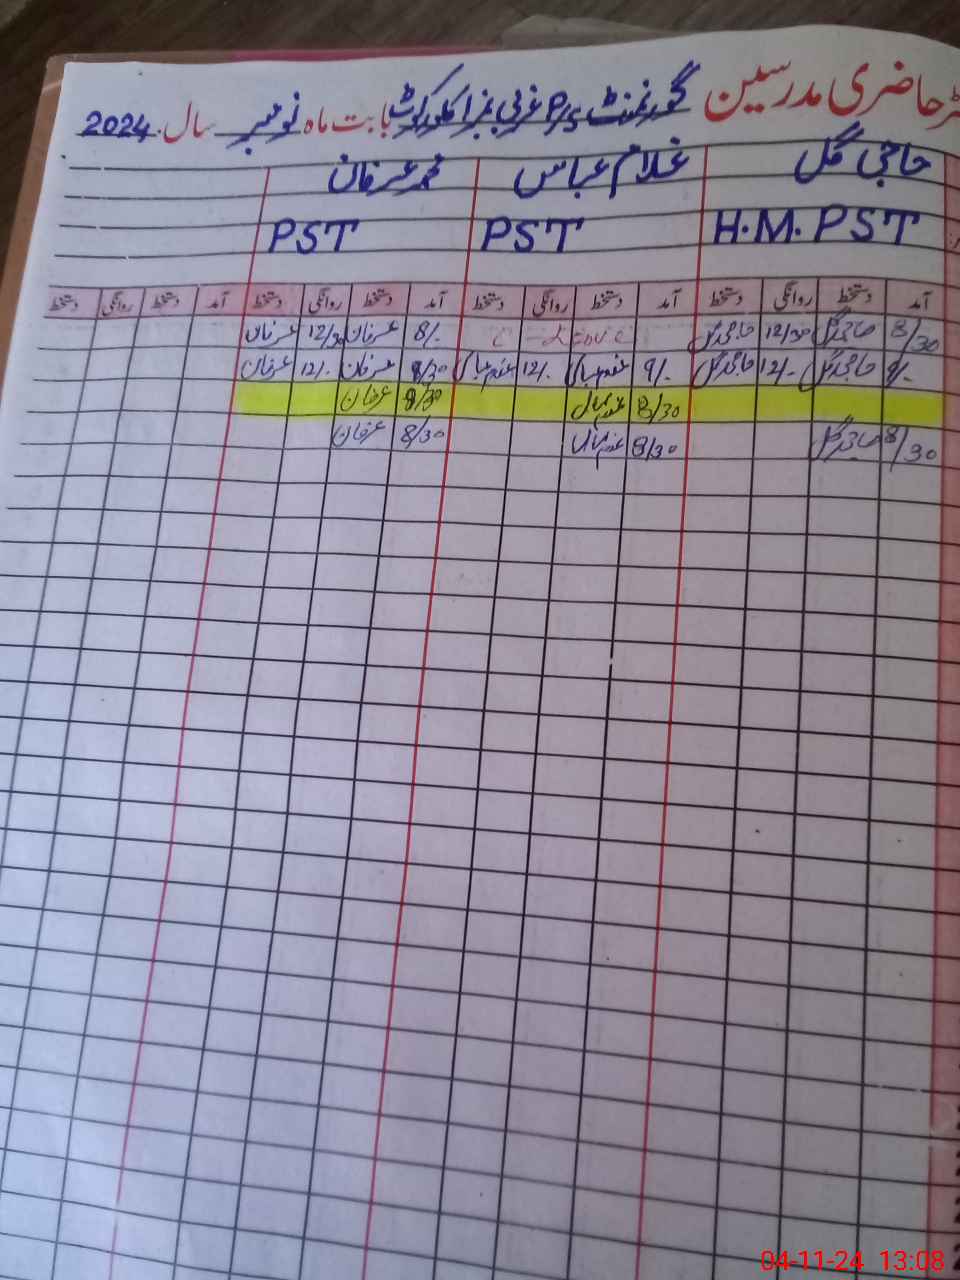 رجسٹر حاضری مدرسین گورنمنٹ P/S غربی بابت ماہ نومبر سال 2024
حاجی گل غلام عباس محمد عرفان
H.M. PST PST PST
آمد دستخط روانگی دستخط آمد دستخط روانگی دستخط آمد دستخط روانگی دستخط آمد دستخط روانگی دستخط
8/30 حاجی گل 12/30 حاجی گل C - Leave C 8/- عرفان 12/30 عرفان
9/- حاجی گل 12/- حاجی گل 9/- غلام عباس 12/- غلام عباس 8/30 عرفان 12/- عرفان
8/30 غلام عباس 8/30 عرفان
8/30 حاجی گل 8/30 غلام عباس 8/30 عرفان
04-11-24 13:08